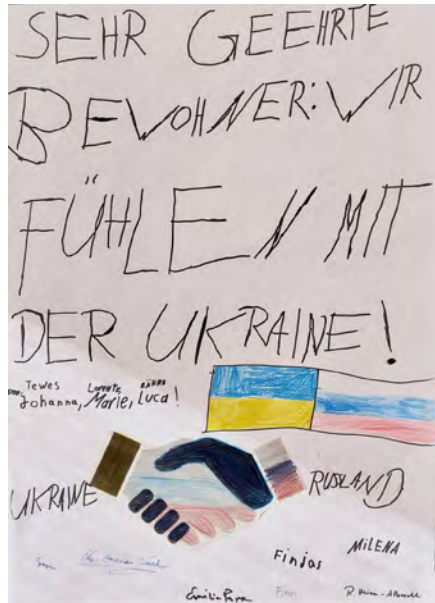 SEHR GEEHRTE
BEWOHNER: WIR
FÜHLEN MIT
DER UKRAINE!
Tewes Lorentz
Johanna, Marie, Luca!
UKRAINE
RUSLAND
MILENA
Finjas
Emilia
Finn